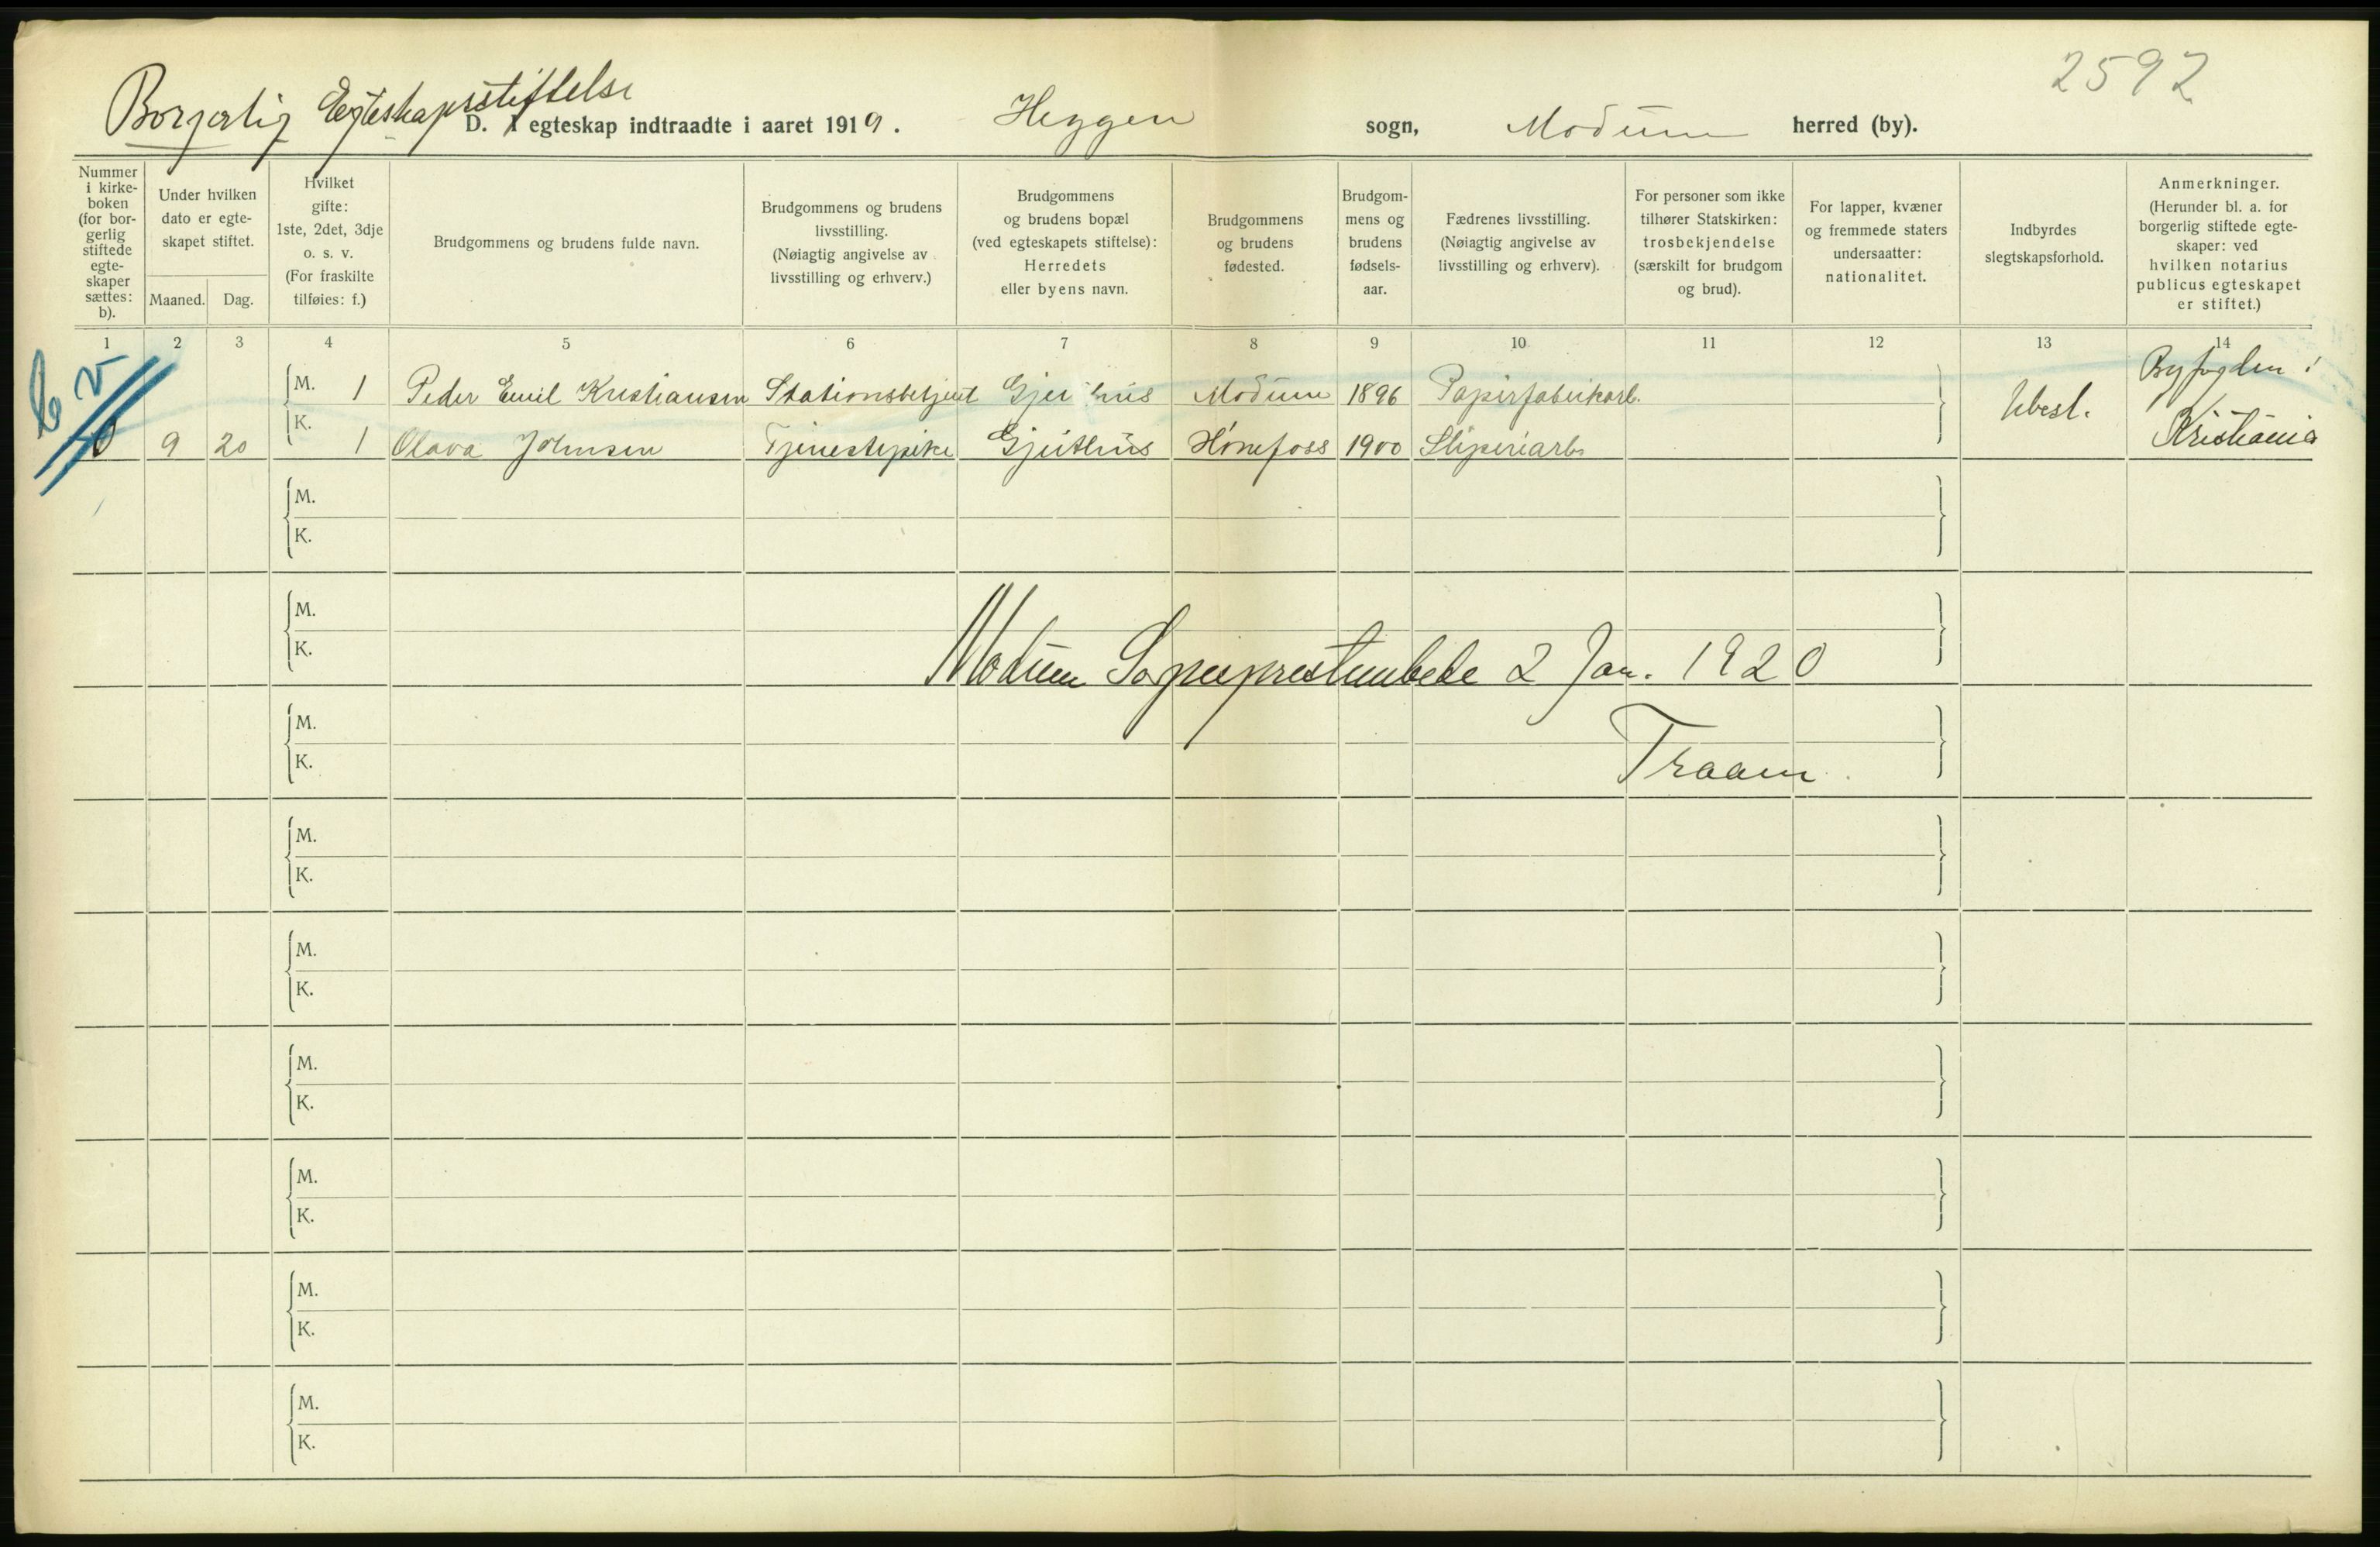 2592
Borgerlig Egteskapsstiftelse
D. I egteskap indtraadte i aaret 1919. Heggen sogn, Modum herred (by).
Nummer i kirke-boken (for bor-gerlig stiftede egte-skaper sættes: b).
Under hvilken dato er egte-skapet stiftet.
Maaned. Dag.
Hvilket gifte: 1ste, 2det, 3dje o. s. v. (For fraskilte tilføies: f.)
Brudgommens og brudens fulde navn.
Brudgommens og brudens livsstilling. (Nøiagtig angivelse av livsstilling og erhverv.)
Brudgommens og brudens bopæl (ved egteskapets stiftelse): Herredets eller byens navn.
Brudgommens og brudens fødested.
Brudgom-mens og brudens fødsels-aar.
Fædrenes livsstilling. (Nøiagtig angivelse av livsstilling og erhverv).
For personer som ikke tilhører Statskirken: trosbekjendelse (særskilt for brudgom og brud).
For lapper, kvæner og fremmede staters undersaatter: nationalitet.
Indbyrdes slegtskapsforhold.
Anmerkninger. (Herunder bl. a. for borgerlig stiftede egte-skaper: ved hvilken notarius publicus egteskapet er stiftet.)
1 2 3 4 5 6 7 8 9 10 11 12 13 14
M. 1 Peder Emil Kristiansen Stationsbetjent Gjeithus Modum 1896 Papirfabrikarb. Ubesl. Byfogden i
9 20 K. 1 Olava Johnsen Tjenestepike Gjeithus Hönefoss 1900 Sliperiarb. Kristiania
M.
K.
M.
K.
Modum Sogneprestembede 2 Jan. 1920
M.
K.
Traaen
M.
K.
M.
K.
M.
K.
M.
K.
M.
K.
M.
K.